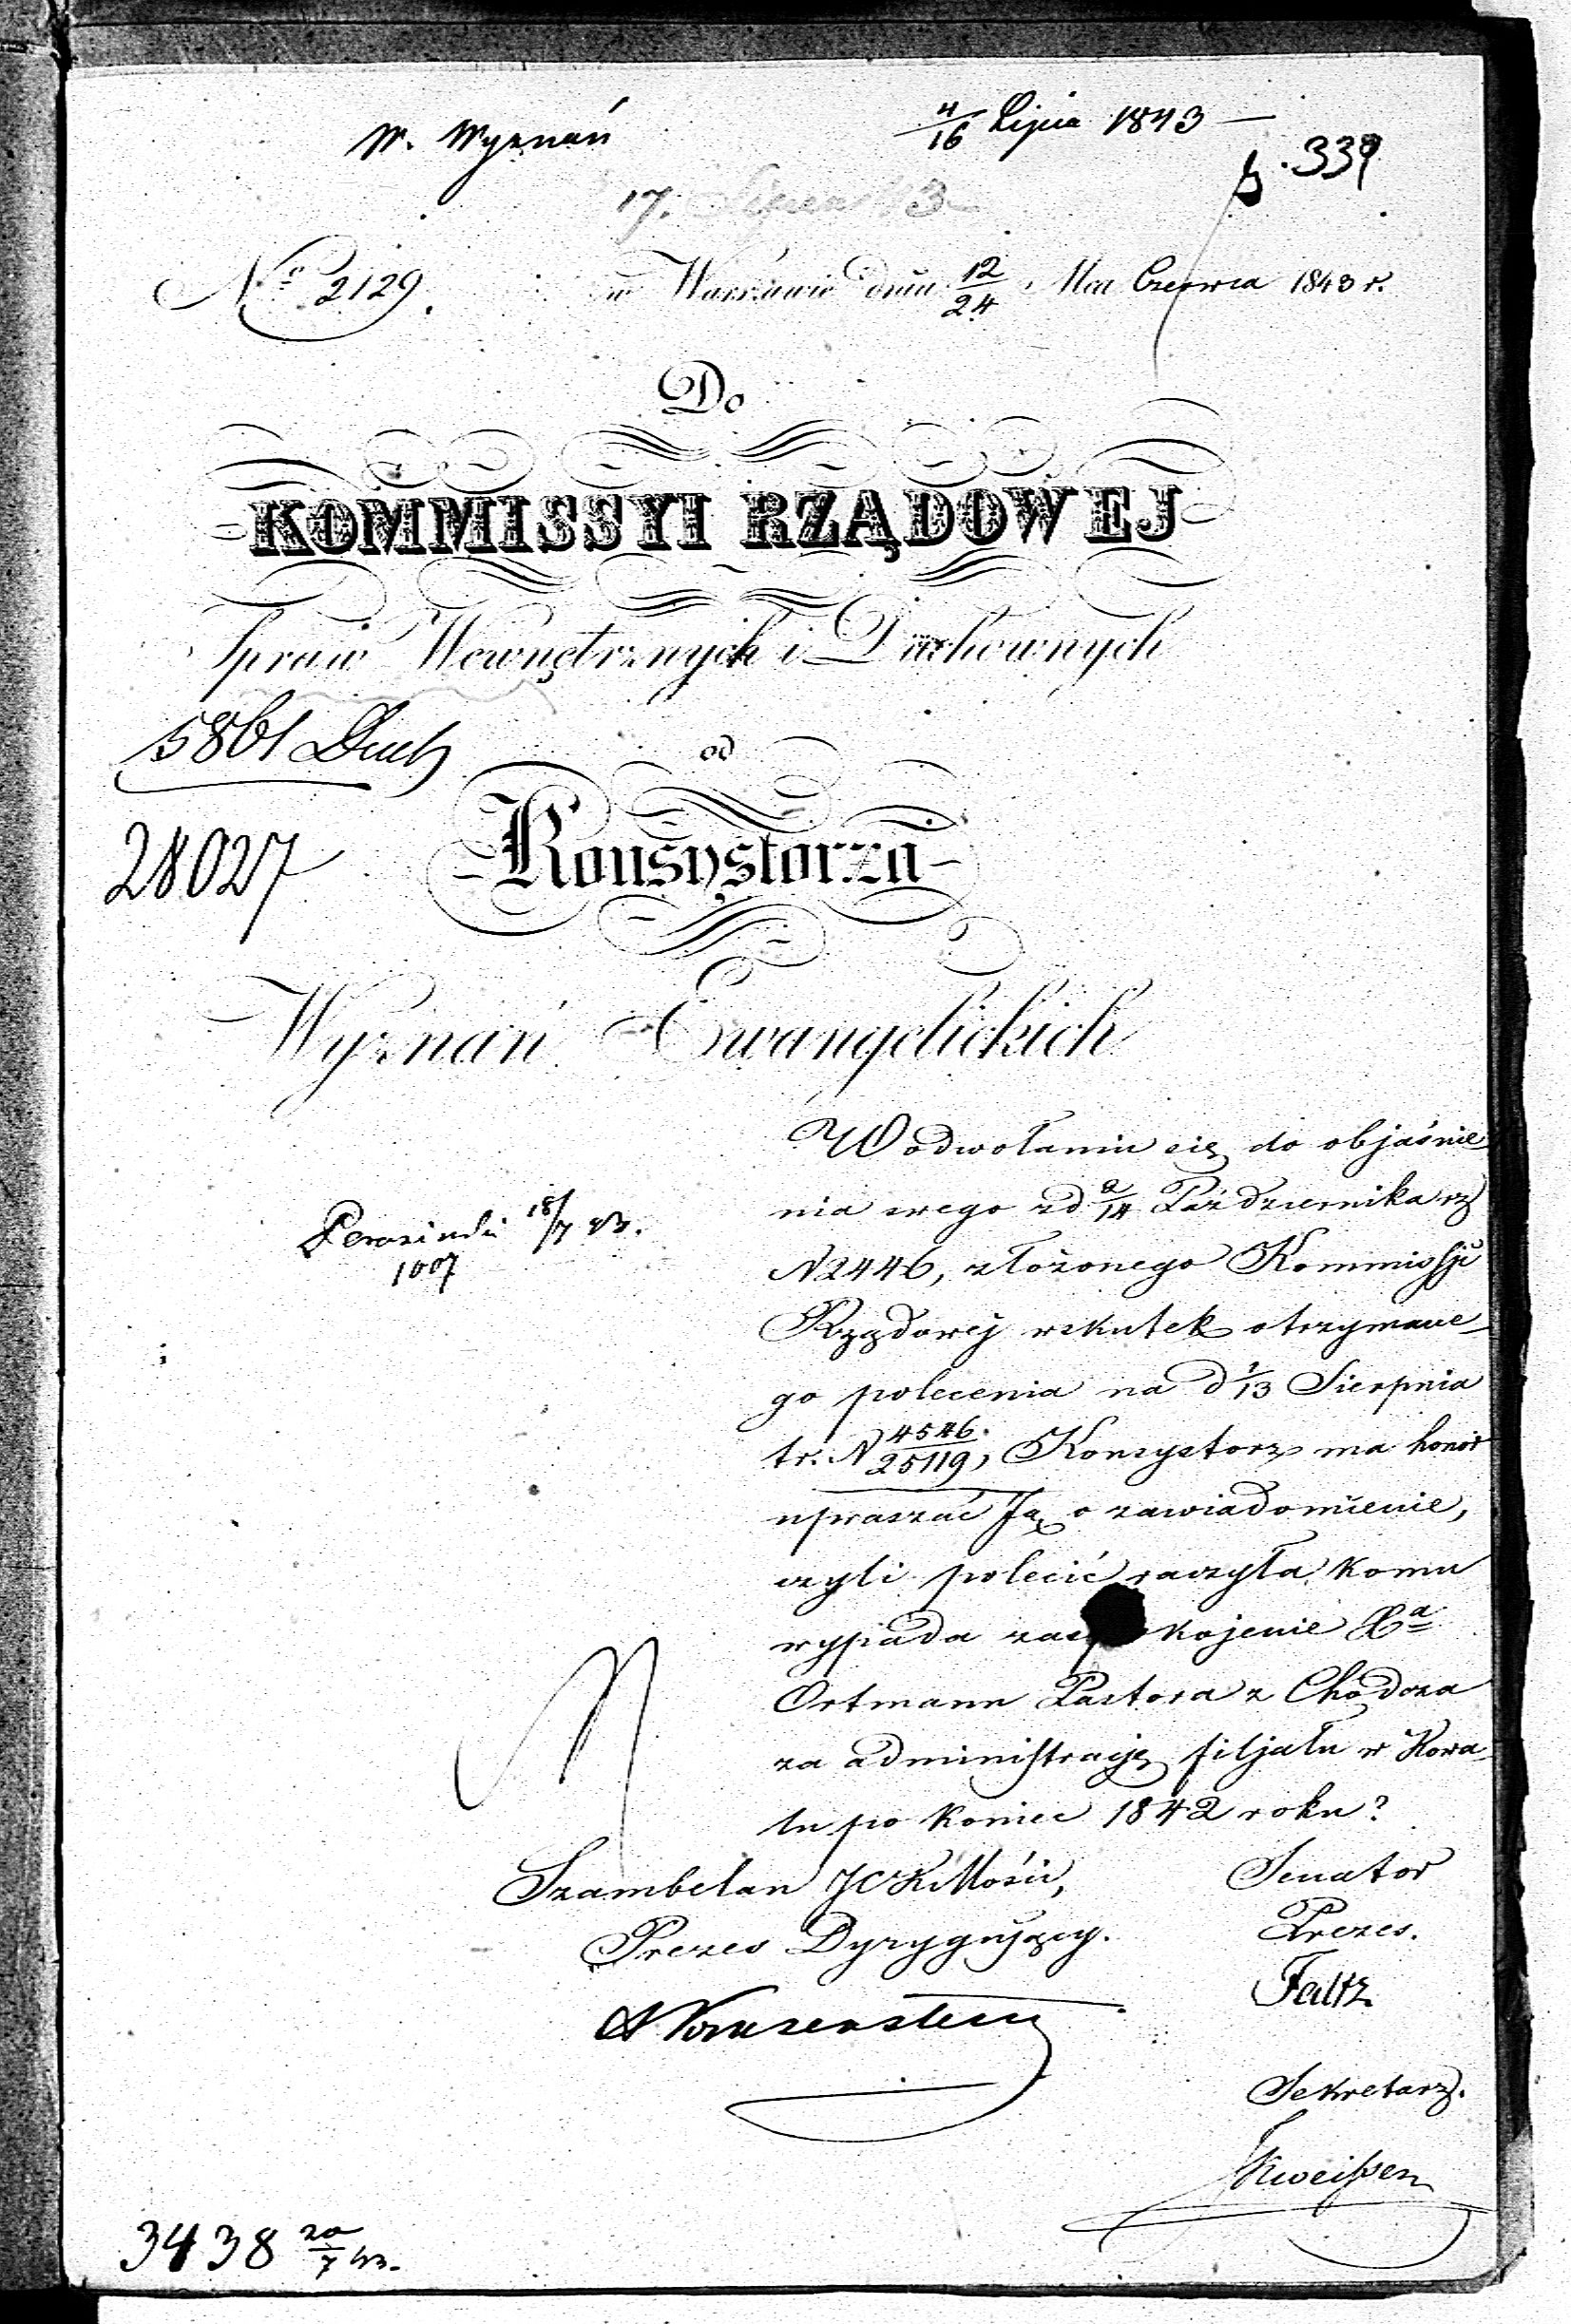 W. Wyznań
4/16 Lipca 1843
339
17.
No 2129.
w Warszawie dnia 12/24 Mca Czerwca 1843 r.
Do
KOMMISSYI RZĄDOWEJ
Spraw Wewnętrznych i Duchownych
5861 Duch
od
28027
Konsystorza
Wyznań Ewangelickich
W odwołaniu się do objaśnie
nia swego z d 2/14 Października rz
N 2446, złożonego Kommissji
Rządowej wskutek otrzymane-
go polecenia na d 1/13 Sierpnia
tr. N 4546./25119, Konsystorz ma honor
upraszać Ją o zawiadomienie,
czyli polecić raczyła komu
wypada zaspokojenie Xa
Ortmann Pastora z Chodcza
za administracją filjału w Kowa-
lu po koniec 1842 roku?
18/7 43.
1007
Szambelan JCK Mości,
Prezes Dyrygujący.
Senator
Prezes.
Faltz
Sekretarz.
3438 20/7 43.